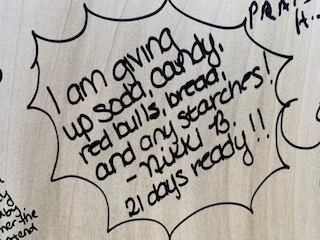 I am giving
up soda, candy,
red bulls, bread,
and any starches!
- Nikki B.
21 days ready!!
PRAI
H...